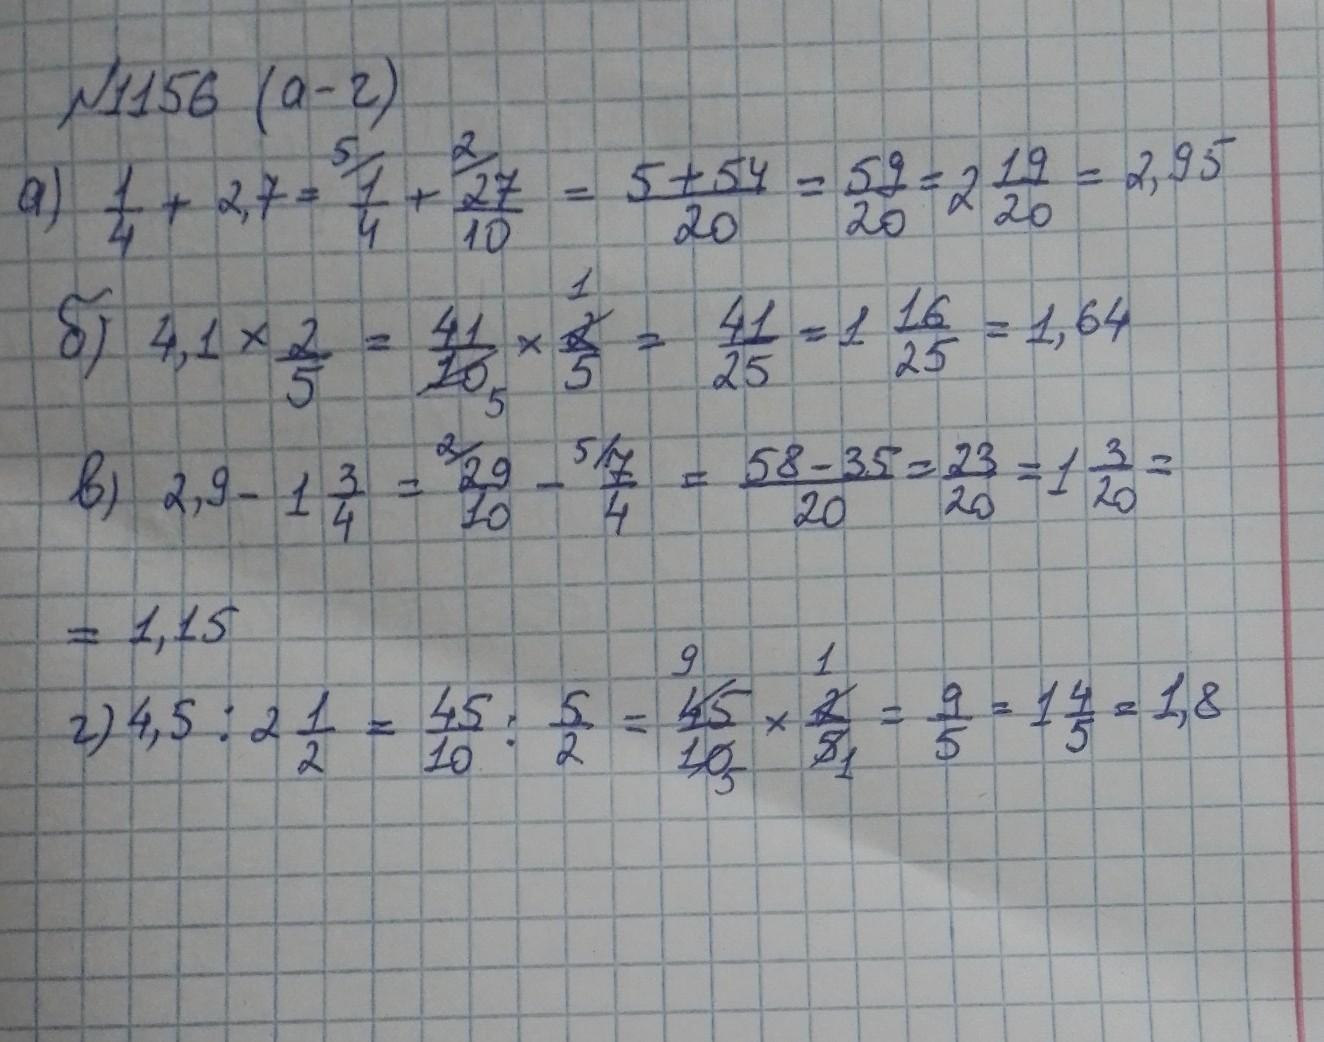 №1156 (а-г)
а) 1/4 + 2,7 = ⁵/1/4 + ²/27/10 = 5+54/20 = 59/20 = 2 19/20 = 2,95
б) 4,1 × 2/5 = 41/10 5 × 1 2/5 = 41/25 = 1 16/25 = 1,64
в) 2,9 - 1 3/4 = ²/29/10 - ⁵/7/4 = 58-35/20 = 23/20 = 1 3/20 =
= 1,15
г) 4,5 : 2 1/2 = 45/10 : 5/2 = 9 45/10 5 × 1 2/5 1 = 9/5 = 1 4/5 = 1,8